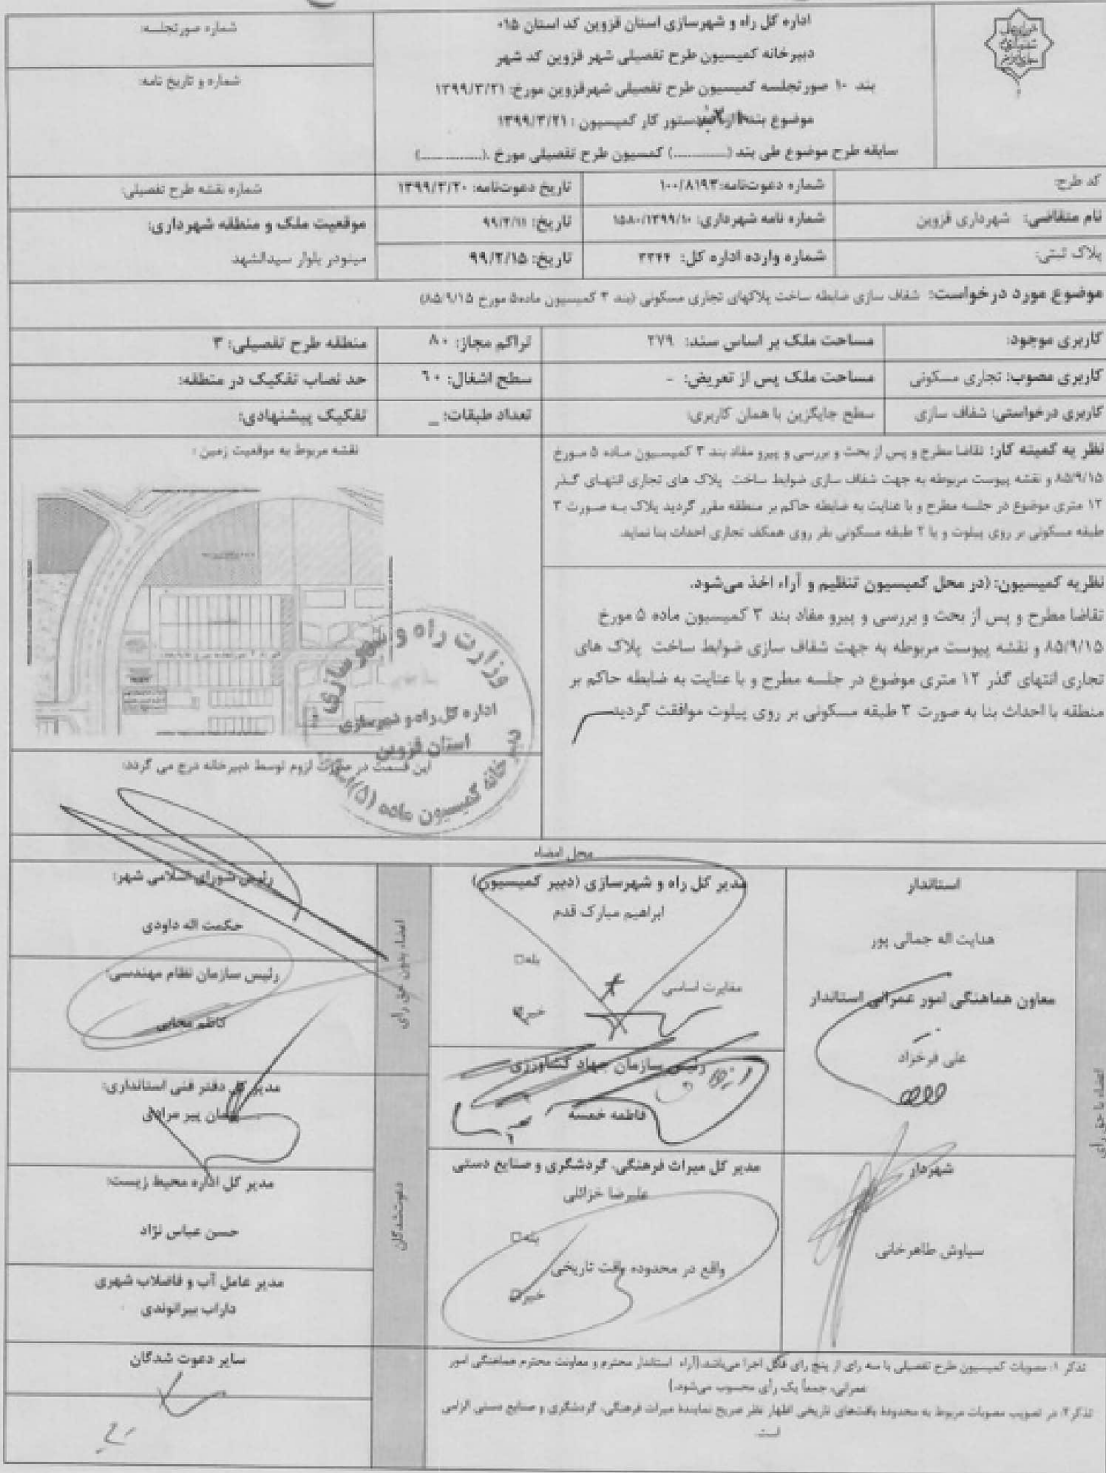 شماره صورتجلسه:
شماره و تاریخ نامه:
اداره کل راه و شهرسازی استان قزوین کد استان ۰۱۵
دبیرخانه کمیسیون طرح تفصیلی شهر قزوین کد شهر
بند ۱۰ صورتجلسه کمیسیون طرح تفصیلی شهرقزوین مورخ: ۱۳۹۹/۳/۲۱
دستور کار کمیسیون : ۱۳۹۹/۳/۲۱
سابقه طرح موضوع طی بند (............) کمسیون طرح تفصیلی مورخ .(..............)
کد طرح:
شماره دعوت‌نامه: ۱۰۰/۸۱۹۳
تاریخ دعوت‌نامه: ۱۳۹۹/۳/۲۰
شماره نقشه طرح تفصیلی:
نام متقاضی: شهرداری قزوین
شماره نامه شهرداری: ۱۵۸۰/۱۳۹۹/۱۰
تاریخ: ۹۹/۲/۱۱
موقعیت ملک و منطقه شهرداری:
پلاک ثبتی:
شماره وارده اداره کل: ۳۳۴۴
تاریخ: ۹۹/۲/۱۵
مینودر بلوار سیدالشهد
موضوع مورد درخواست: شفاف سازی ضابطه ساخت پلاکهای تجاری مسکونی (بند ۳ کمیسیون ماده۵ مورخ ۸۵/۹/۱۵)
کاربری موجود:
مساحت ملک بر اساس سند: ۲۷۹
تراکم مجاز: ۸۰
منطقه طرح تفصیلی: ۳
کاربری مصوب: تجاری مسکونی
مساحت ملک پس از تعریض: -
سطح اشغال: ۶۰
حد نصاب تفکیک در منطقه:
کاربری درخواستی: شفاف سازی
سطح جایگزین با همان کاربری:
تعداد طبقات: _
تفکیک پیشنهادی:
نظر به کمیته کار: تقاضا مطرح و پس از بحث و بررسی و پیرو مفاد بند ۳ کمیسیون ماده ۵ مورخ
۸۵/۹/۱۵ و نقشه پیوست مربوطه به جهت شفاف سازی ضوابط ساخت پلاک های تجاری انتهای گذر
۱۲ متری موضوع در جلسه مطرح و با عنایت به ضابطه حاکم بر منطقه مقرر گردید پلاک به صورت ۳
طبقه مسکونی بر روی پیلوت و یا ۲ طبقه مسکونی بر روی همکف تجاری احداث بنا نماید.
نقشه مربوط به موقعیت زمین :
نظریه کمیسیون: (در محل کمیسیون تنظیم و آراء اخذ می‌شود.
تقاضا مطرح و پس از بحث و بررسی و پیرو مفاد بند ۳ کمیسیون ماده ۵ مورخ
۸۵/۹/۱۵ و نقشه پیوست مربوطه به جهت شفاف سازی ضوابط ساخت پلاک های
تجاری انتهای گذر ۱۲ متری موضوع در جلسه مطرح و با عنایت به ضابطه حاکم بر
منطقه با احداث بنا به صورت ۳ طبقه مسکونی بر روی پیلوت موافقت گردید
وزارت راه و شهرسازی
اداره کل راه و شهرسازی
استان قزوین
دبیرخانه کمیسیون ماده (۵)
این قسمت در صورت لزوم توسط دبیرخانه درج می گردد:
محل امضاء
اعضاء با حق رأی
استاندار
هدایت اله جمالی پور
معاون هماهنگی امور عمرانی استاندار
علی فرخزاد
شهردار
سیاوش طاهرخانی
مدیر کل راه و شهرسازی (دبیر کمیسیون)
ابراهیم مبارک قدم
بله
مغایرت اساسی
خیر
رئیس سازمان جهاد کشاورزی
فاطمه خمسه
مدیر کل میراث فرهنگی، گردشگری و صنایع دستی
علیرضا خزائلی
بله
واقع در محدوده بافت تاریخی
خیر
اعضاء بدون حق رأی
رئیس شورای اسلامی شهر:
حکمت اله داودی
رئیس سازمان نظام مهندسی:
دعوت‌شدگان
مدیر کل دفتر فنی استانداری:
پیمان پیر مرادی
مدیر کل اداره محیط زیست:
حسن عباس نژاد
مدیر عامل آب و فاضلاب شهری
داراب بیرانوندی
سایر دعوت شدگان
تذکر ۱: مصوبات کمیسیون طرح تفصیلی با سه رای از پنج رای قابل اجرا می‌باشد.(آراء استاندار محترم و معاونت محترم هماهنگی امور
عمرانی، جمعاً یک رأی محسوب می‌شود.)
تذکر۲: در تصویب مصوبات مربوط به محدوده بافت‌های تاریخی اظهار نظر صریح نماینده میراث فرهنگی، گردشگری و صنایع دستی الزامی
است.